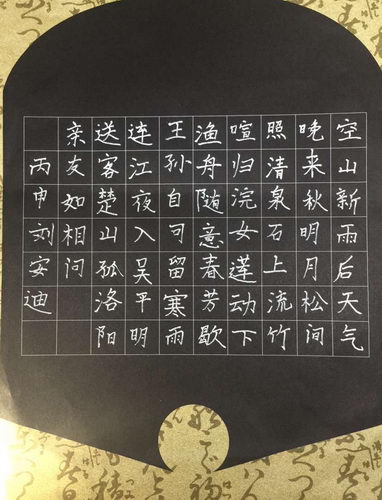 空山新雨后天气
晚来秋明月松间
照清泉石上流竹
喧归浣女莲动下
渔舟随意春芳歇
王孙自可留寒雨
连江夜入吴平明
送客楚山孤洛阳
亲友如相问
丙申刘安迪